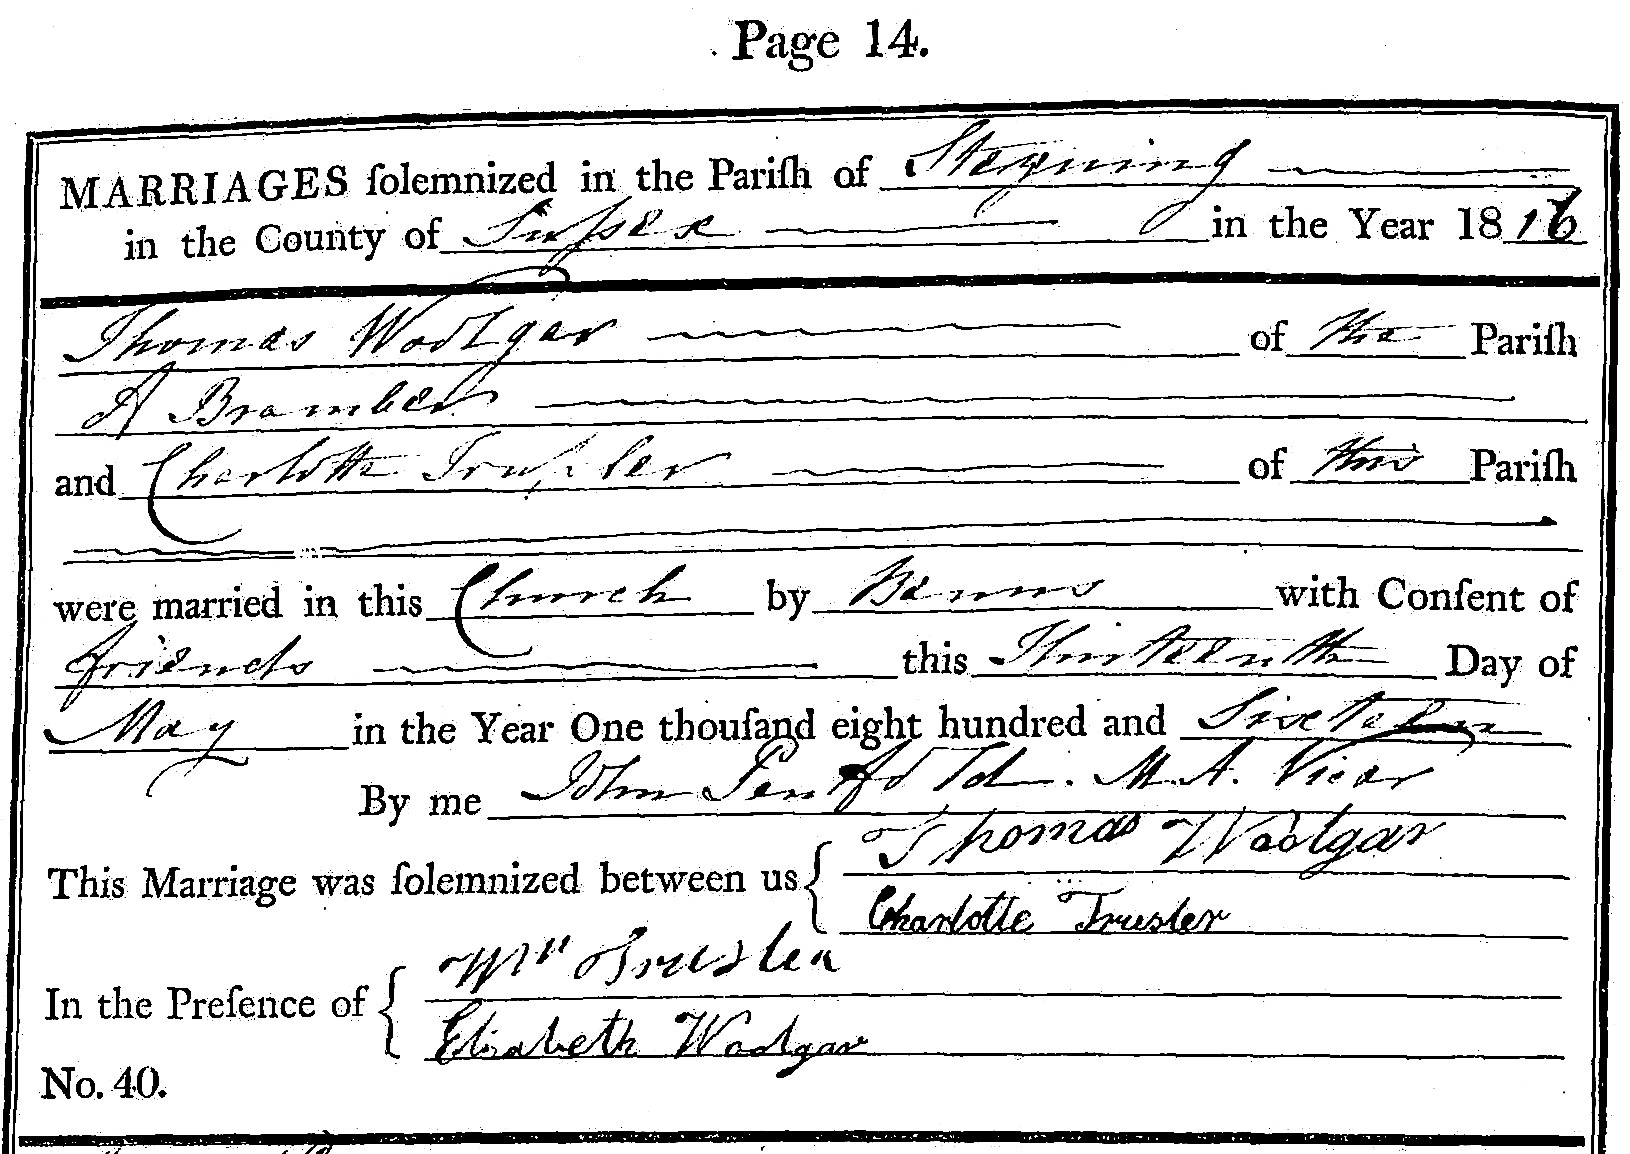 Page 14.
MARRIAGES ſolemnized in the Pariſh of Steyning
in the County of Suſsex in the Year 1816
Thomas Woolgar of the Pariſh
of Bramber
and Charlotte Truſsler of this Pariſh
were married in this Church by Banns with Conſent of
friends this Thirteenth Day of
May in the Year One thouſand eight hundred and Sixteen
By me John Penfold. M.A. Vicar
This Marriage was ſolemnized between us { Thomas Woolgar
Charlotte Trusler
In the Preſence of { Wm Trusler
Elizabeth Woolgar
No. 40.